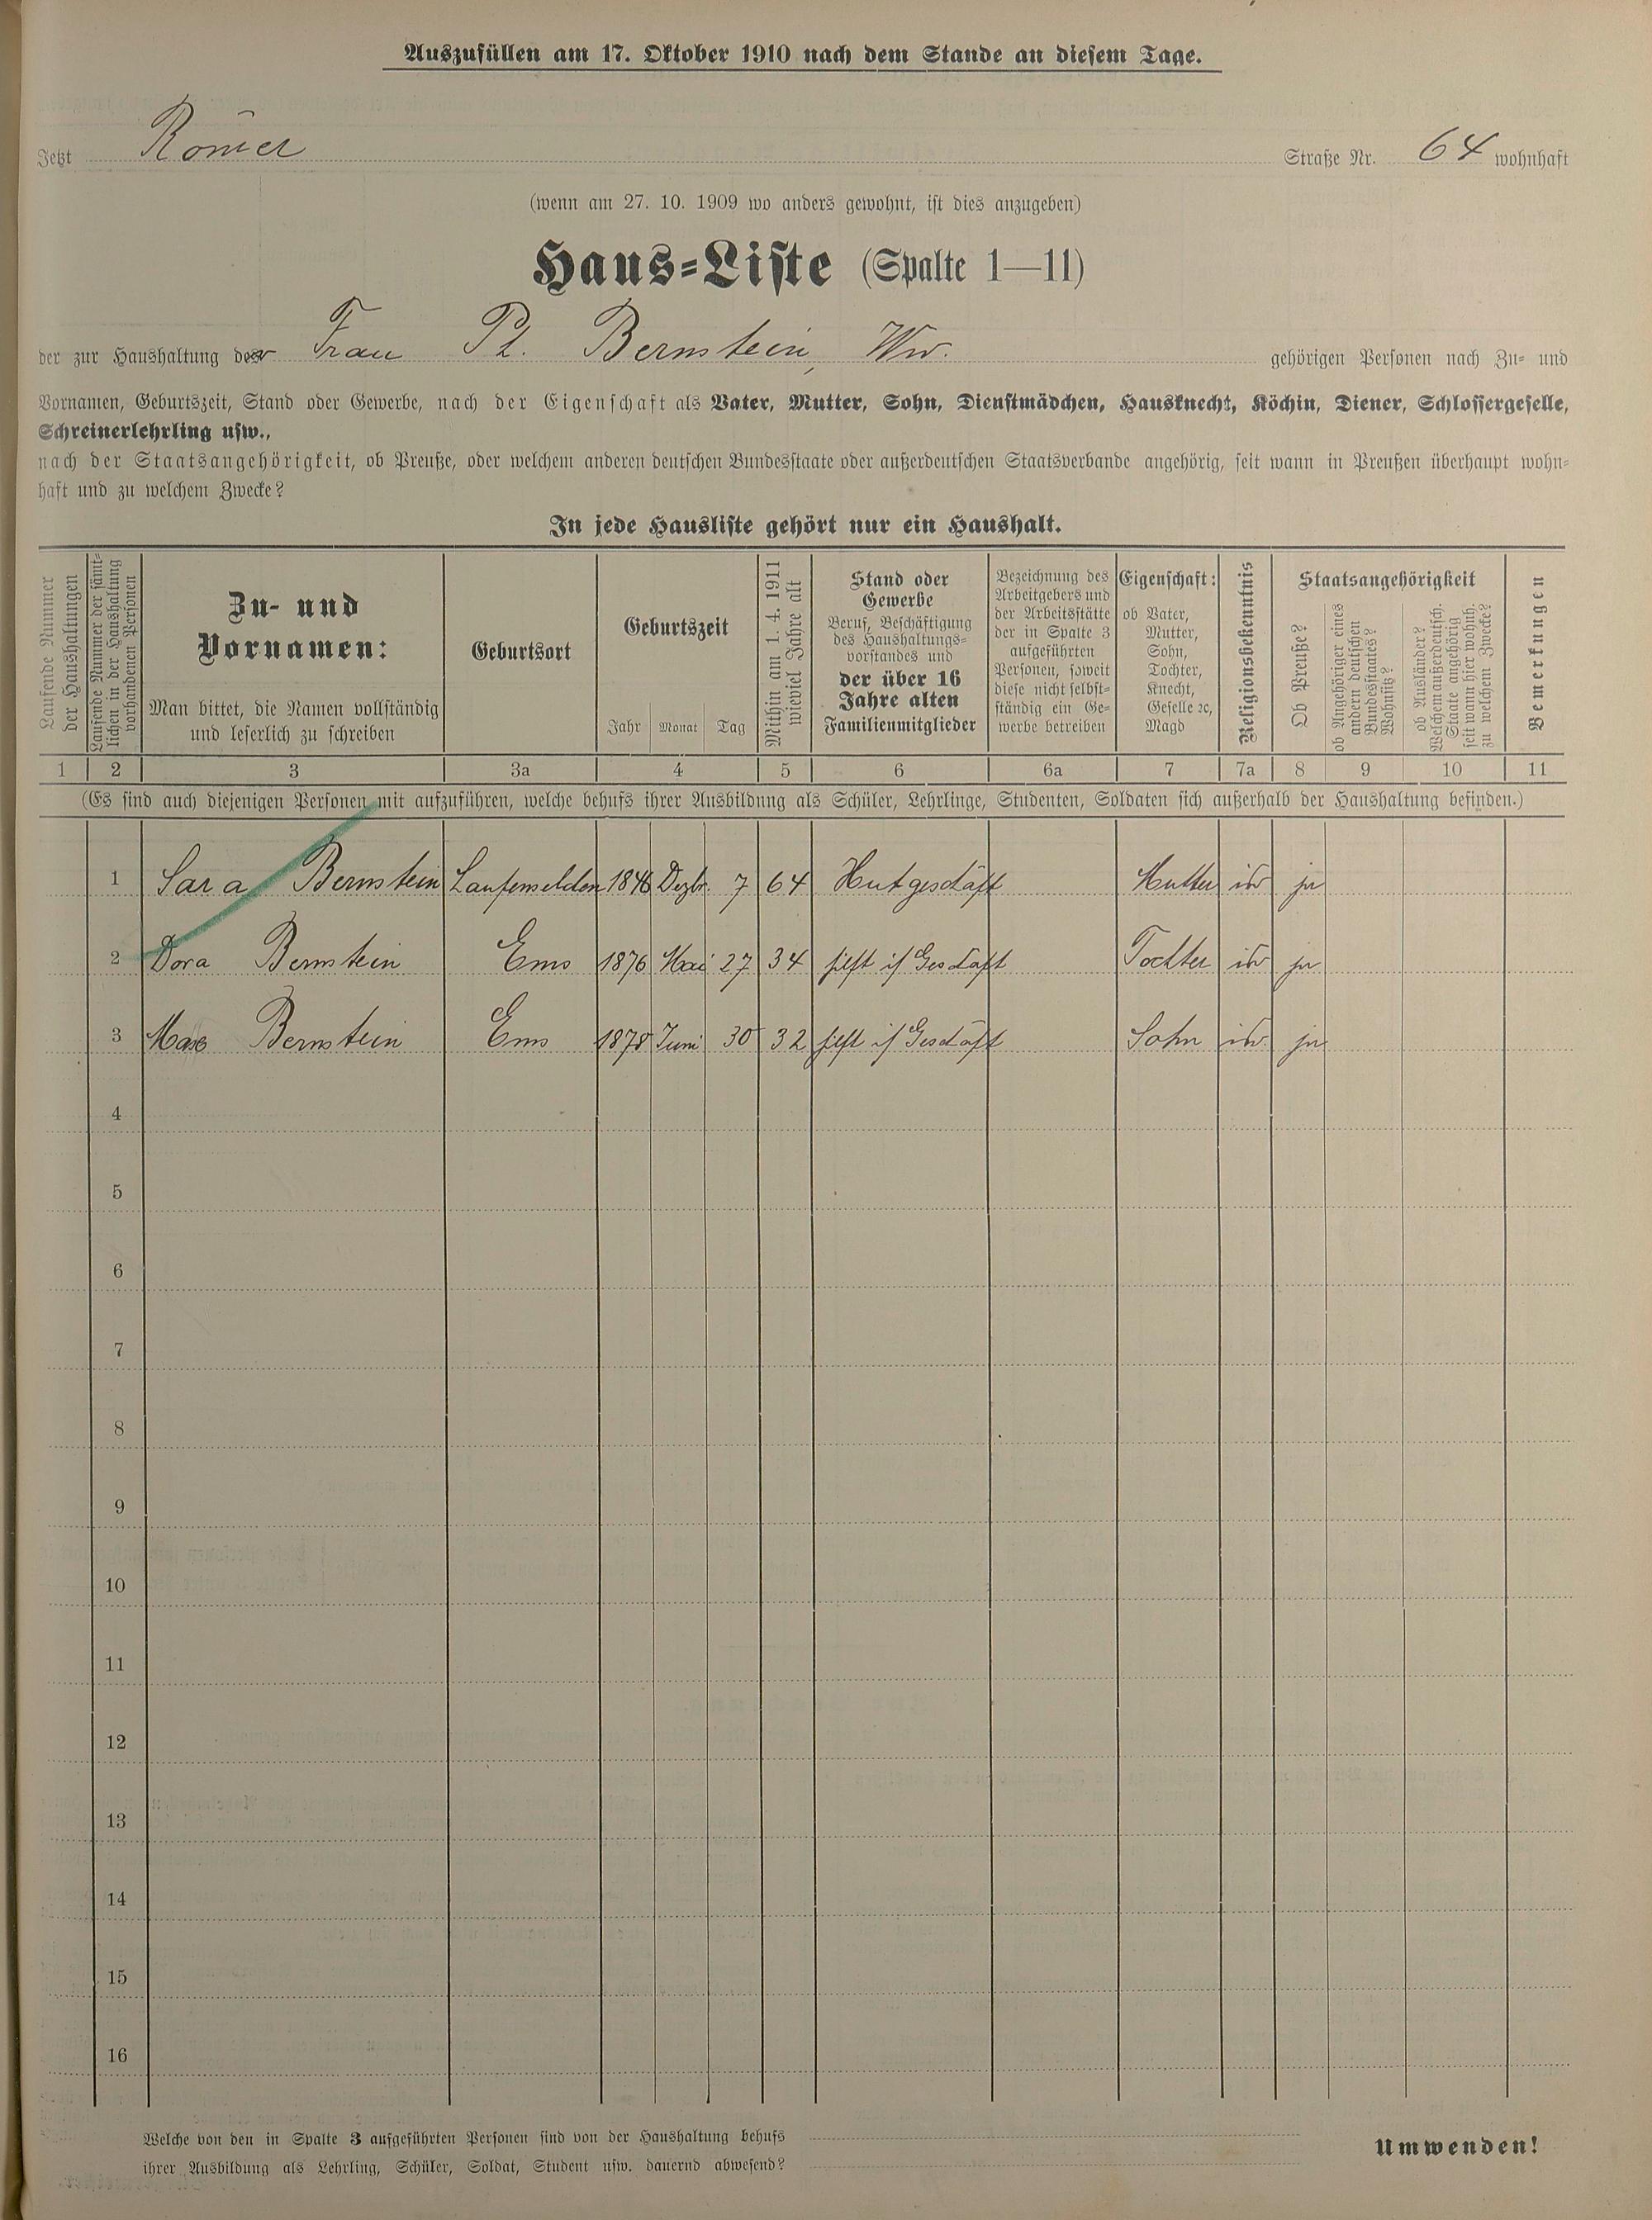 Auszufüllen am 17. Oktober 1910 nach dem Stande an diesem Tage.
Jetzt Römer Straße Nr. 64 wohnhaft
(wenn am 27. 10. 1909 wo anders gewohnt, ist dies anzugeben)
Haus-Liste (Spalte 1—11)
der zur Haushaltung der Frau Ph. Bernstein, Ww. gehörigen Personen nach Zu- und
Vornamen, Geburtszeit, Stand oder Gewerbe, nach der Eigenschaft als Vater, Mutter, Sohn, Dienstmädchen, Hausknecht, Köchin, Diener, Schlossergeselle,
Schreinerlehrling usw.,
nach der Staatsangehörigkeit, ob Preuße, oder welchem anderen deutschen Bundesstaate oder außerdeutschen Staatsverbande angehörig, seit wann in Preußen überhaupt wohn-
haft und zu welchem Zwecke?
In jede Hausliste gehört nur ein Haushalt.
Laufende Nummer
der Haushaltungen
Laufende Nummer der sämt-
lichen in der Haushaltung
vorhandenen Personen
Zu- und
Vornamen:
Man bittet, die Namen vollständig
und leserlich zu schreiben
Geburtsort
Geburtszeit
Jahr Monat Tag
Mithin am 1. 4. 1911
wieviel Jahre alt
Stand oder
Gewerbe
Beruf, Beschäftigung
des Haushaltungs-
vorstandes und
der über 16
Jahre alten
Familienmitglieder
Bezeichnung des
Arbeitgebers und
der Arbeitsstätte
der in Spalte 3
aufgeführten
Personen, soweit
diese nicht selbst-
ständig ein Ge-
werbe betreiben
Eigenschaft:
ob Vater,
Mutter,
Sohn,
Tochter,
Knecht,
Geselle ꝛc,
Magd
Religionsbekenntnis
Staatsangehörigkeit
Ob Preuße?
ob Angehöriger eines
andern deutschen
Bundesstaates?
Wohnsitz?
ob Ausländer?
Welchem außerdeutsch.
Staate angehörig
seit wann hier wohnh.
zu welchem Zwecke?
Bemerkungen
1 2 3 3a 4 5 6 6a 7 7a 8 9 10 11
(Es sind auch diejenigen Personen mit aufzuführen, welche behufs ihrer Ausbildung als Schüler, Lehrlinge, Studenten, Soldaten sich außerhalb der Haushaltung befinden.)
1 Sara Bernstein Laufenselden 1846 Dezbr. 7 64 Hutgeschäft Mutter isr ja
2 Dora Bernstein Ems 1876 Mai 27 34 hilft i/ Geschäft Tochter isr ja
3 Max Bernstein Ems 1878 Juni 30 32 hilft i/ Geschäft Sohn isr. ja
4
5
6
7
8
9
10
11
12
13
14
15
16
Welche von den in Spalte 3 aufgeführten Personen sind von der Haushaltung behufs
ihrer Ausbildung als Lehrling, Schüler, Soldat, Student usw. dauernd abwesend?
Umwenden!